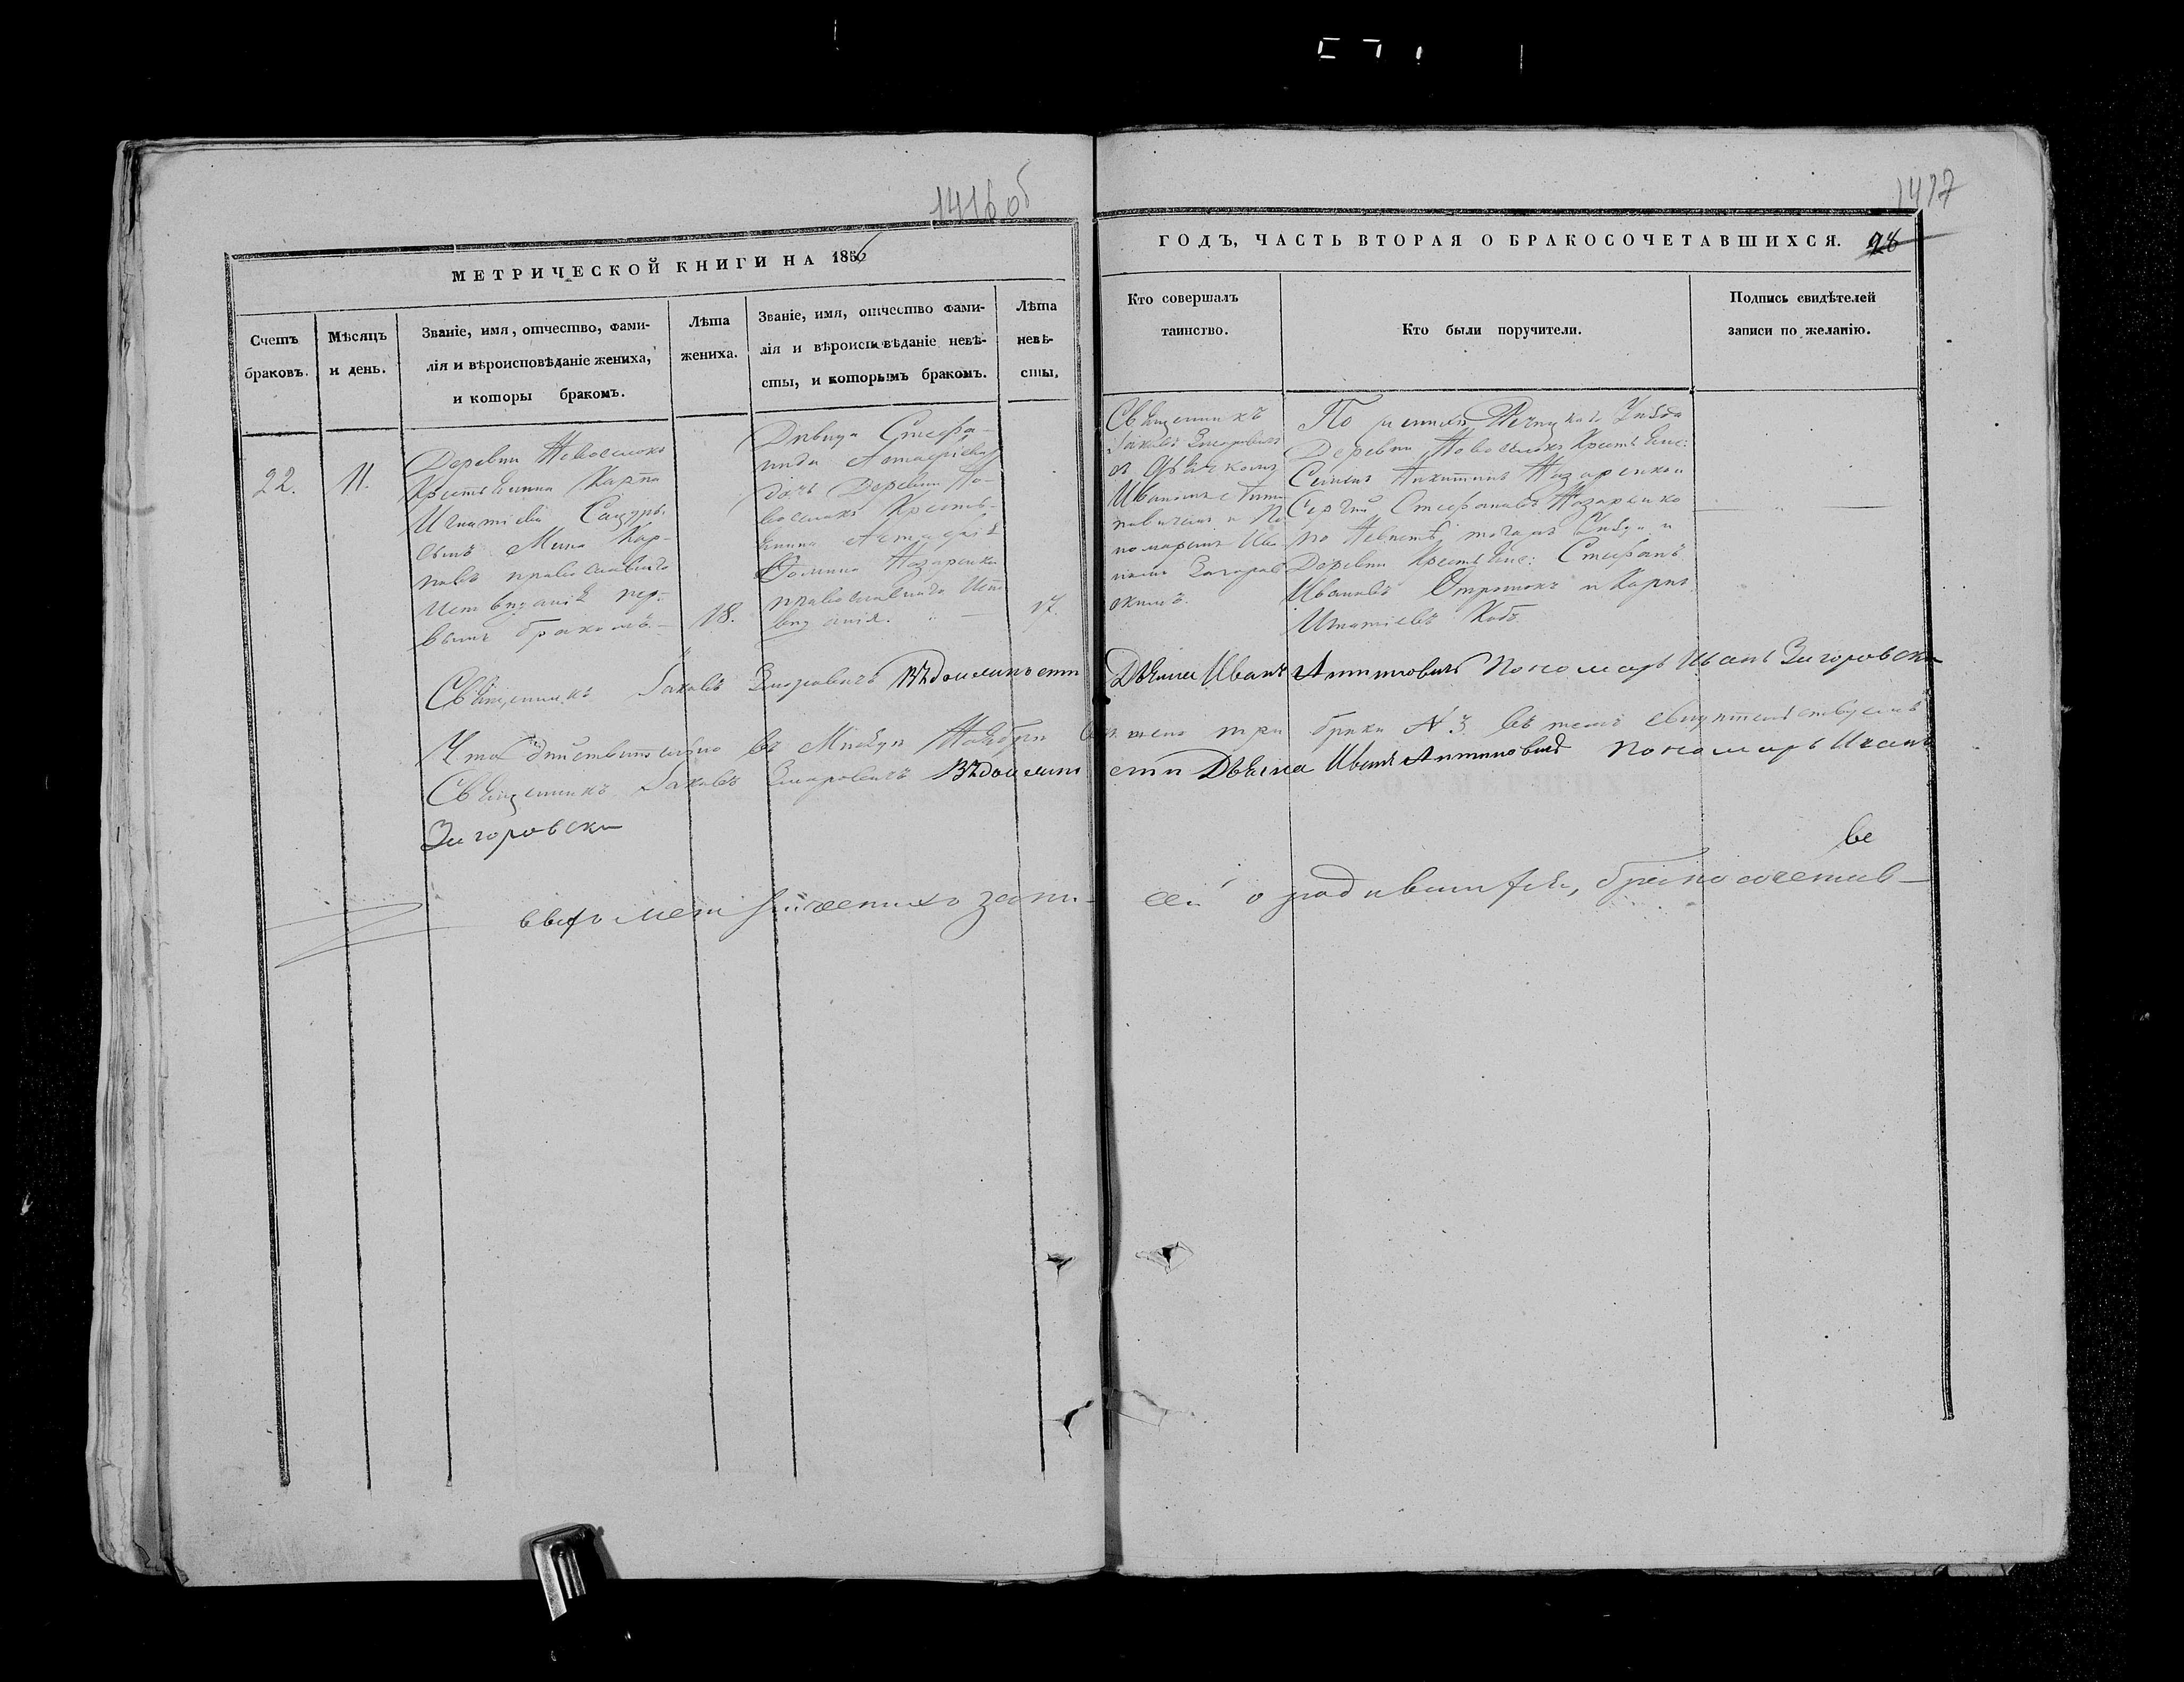 1416 об
1417
МЕТРИЧЕСКОЙ КНИГИ НА 1856
ГОДЪ, ЧАСТЬ ВТОРАЯ О БРАКОСОЧЕТАВШИХСЯ. 28
Счетъ
браковъ.
Мѣсяцъ
и день.
Званіе, имя, отчество, фами-
лія и вѣроисповѣданіе жениха,
и которы бракомъ.
Лѣта
жениха.
Званіе, имя, отчество фами-
лія и вѣроисповѣданіе невѣ-
сты, и которымъ бракомъ.
Лѣта
невѣ-
сты.
Кто совершалъ
таинство.
Кто были поручители.
Подпись свидѣтелей
записи по желанію.
22.
11.
Деревни Новоселокъ
Крестьянина Карпа
Игнатіева
сынъ Мина Кар-
повъ православнаго
Исповѣданія пер-
вымъ бракомъ.
18.
Дѣвица Стефа-
нида
дочь Деревни Но-
воселокъ Кресть-
янина
Фомина Назаренка
православнаго Испо
вѣданія.
17.
Священникъ
Іаковъ
съ Дьячкомъ
Иваномъ Анти-
повичемъ и По
номаремъ Ива
номъ Загоров
скимъ.
По женихѣ Рѣчицкаго Уѣзда
Деревни Новоселокъ Крестьяне:
Семенъ Никитинъ Назаренко и
Сергій Стефановъ Назаренко
по Невѣстѣ тогожъ Уѣзда и
Деревни Крестьяне: Стефанъ
Ивановъ и Карпъ
Игнатіевъ
Священникъ Іаковъ Дьячекъ Иванъ Антиповичъ Пономарь Иванъ Загоровски
Что дѣйствительно въ Мѣсяцѣ Ноябрѣ три брака № 3. въ томъ свидѣтельствуемъ
Священникъ Іаковъ Дьячекъ Иванъ Антиповичъ Пономарь Иванъ
Загоровски
ве
сей о родившихся, бракосочетав-